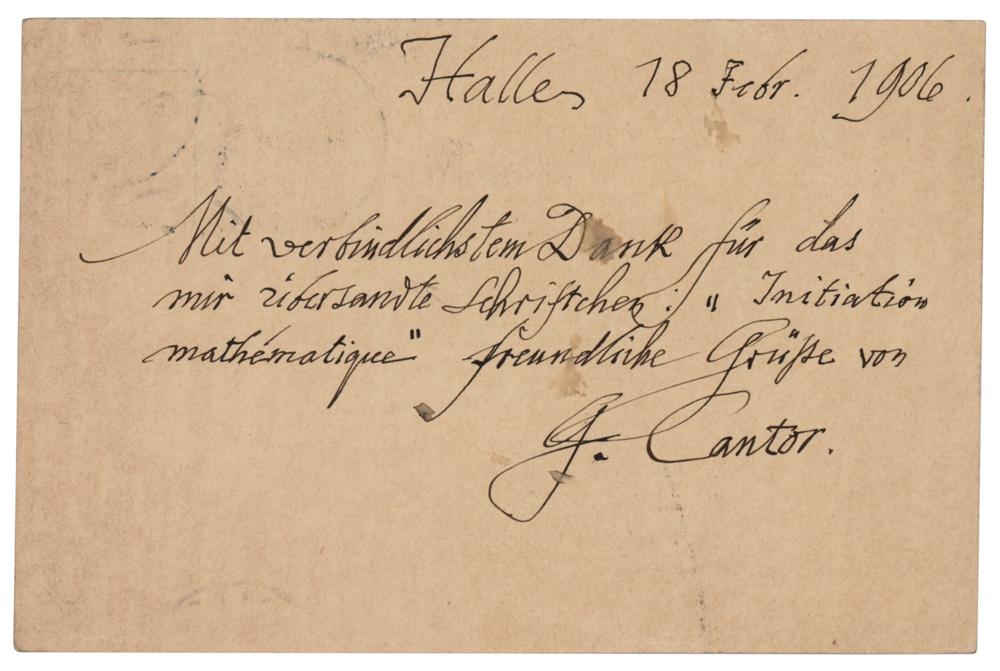 Halle, 18 Febr. 1906.
Mit verbindlichstem Dank für das
mir übersandte Schriftchen: „Initiation
mathématique" freundliche Grüße von
G. Cantor.